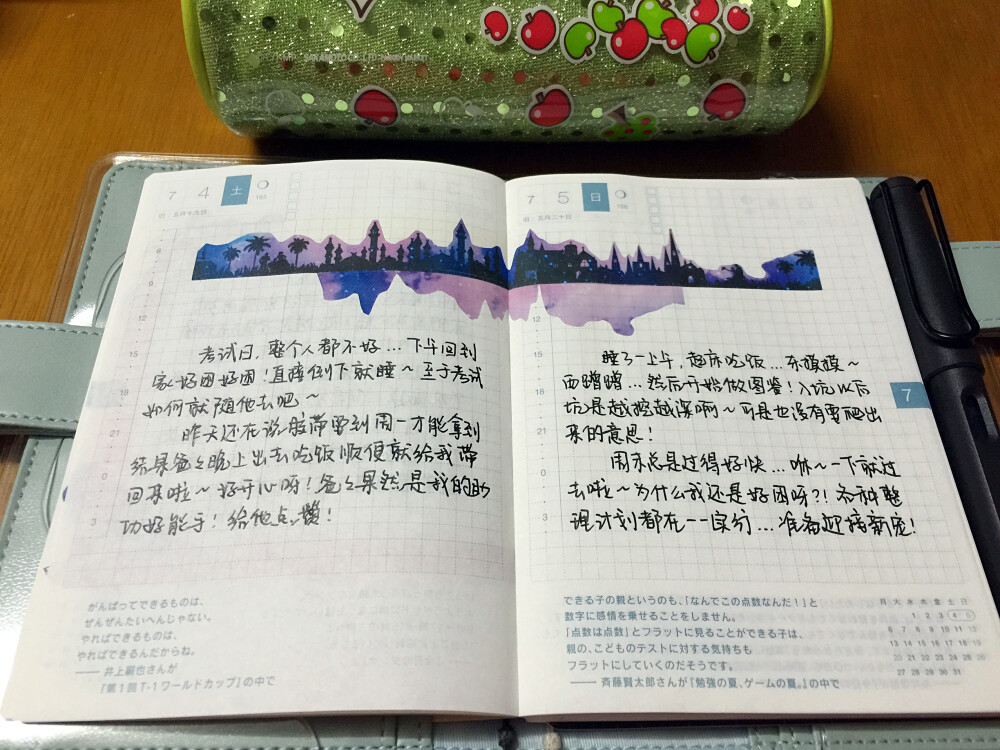 7 4 土
186
旧 五月十九日
9
12
15
18
21
0
3
考试日，整个人都不好…下午回到
家好困好困！直接倒下就睡～至于考试
如何就随他去吧～
昨天还在说胶带要到周一才能拿到
结果爸々晚上出去吃饭顺便就给我带
回来啦～好开心呀！爸々果然是我的助
功好能手！给他点赞！
がんばってできるものは、
ぜんぜんたいへんじゃない。
やればできるものは、
やればできるんだからね。
—— 井上嗣也さんが
『第1回T-1ワールドカップ』の中で
7 5 日
186
旧 五月二十日
12
15
18
21
0
3
睡了一上午，起床吃饭…东摸摸～
西蹭蹭…然后开始做图鉴！入坑以后
坑是越挖越深啊～可是也没有要爬出
来的意思！
周末总是过得好快…咻～一下就过
去啦～为什么我还是好困呀？！各种整
理计划都在一一实行…准备迎接新宠！
7
できる子の親というのも、「なんでこの点数なんだ！」と
数字に感情を乗せることをしません。
「点数は点数」とフラットに見ることができる子は、
親の、こどものテストに対する気持ちも
フラットにしていくのだそうです。
—— 斉藤賢太郎さんが『勉強の夏、ゲームの夏。』の中で
月 火 水 木 金 土 日
1 2 3 4 5
6 7 8 9 10 11 12
13 14 15 16 17 18 19
20 21 22 23 24 25 26
27 28 29 30 31